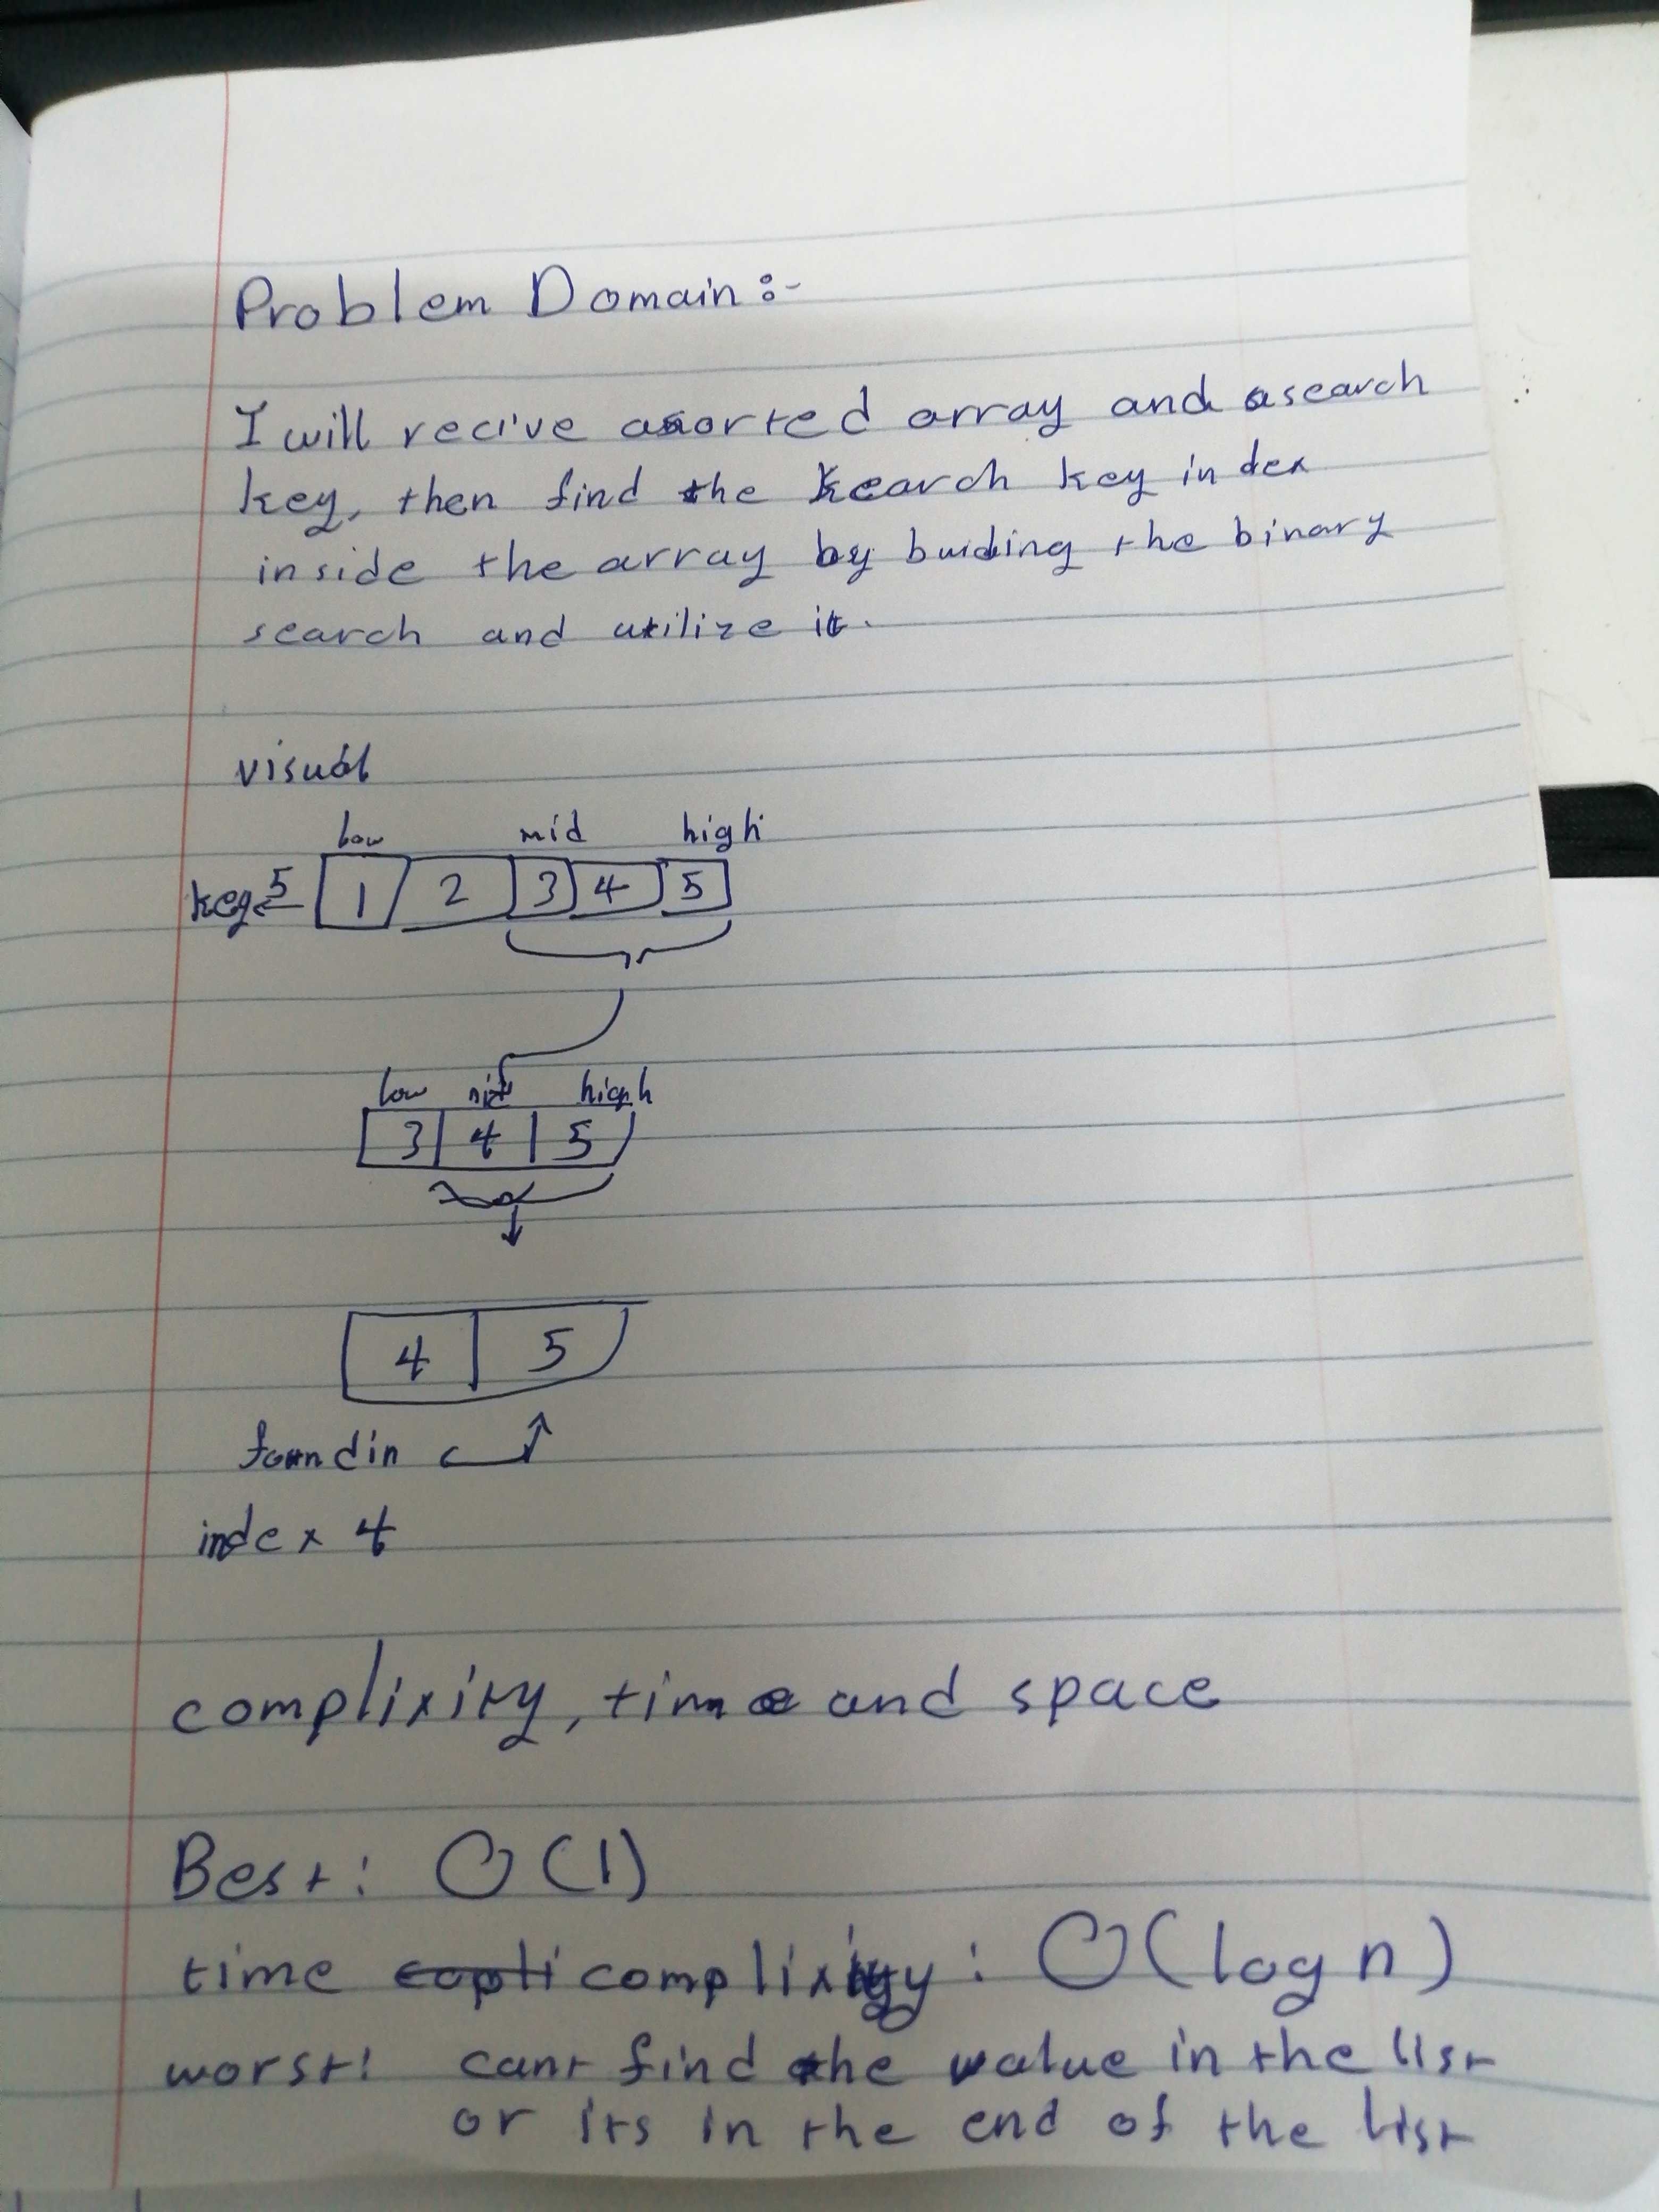 Problem Domain :-
I will recive a sorted array and a search
key, then find the search key index
inside the array by buiding the binary
search and utilize it.
visual
low mid high
key=5 1 2 3 4 5
low mid high
3 4 5
4 5
found in
index 4
complixity, time and space
Best: O(1)
time complixity: O(log n)
worst: cant find the value in the list
or its in the end of the list